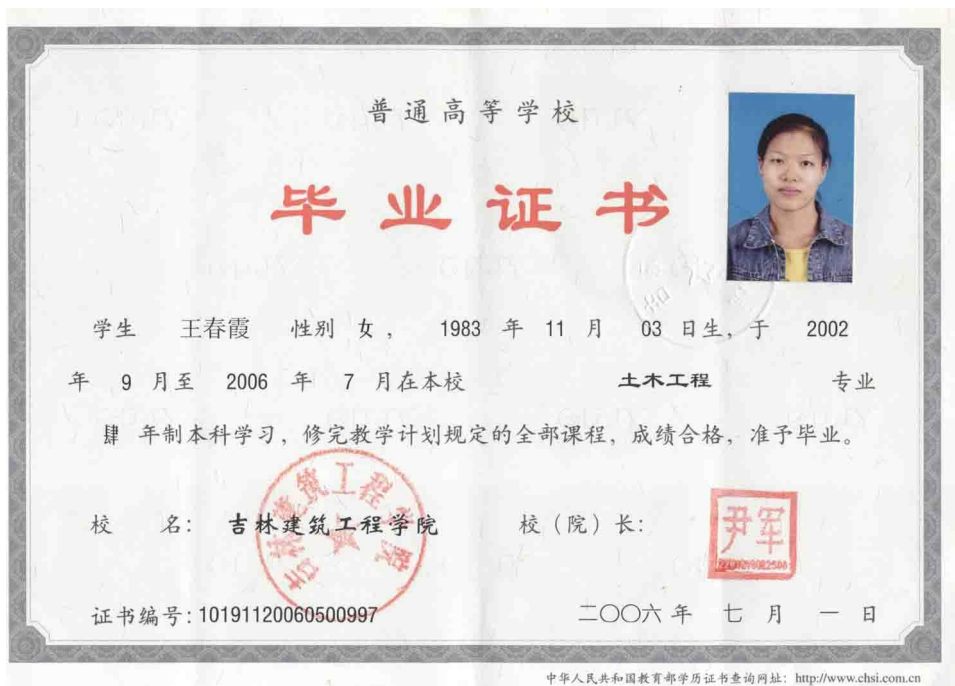 普通高等学校
毕业证书
学生 王春霞 性别 女， 1983 年 11 月 03 日生，于 2002
年 9 月至 2006 年 7 月在本校 土木工程 专业
肆 年制本科学习，修完教学计划规定的全部课程，成绩合格，准予毕业。
校 名： 吉林建筑工程学院 校（院）长：
吉林建筑工程学院
尹军
证书编号：10191120060500997 二〇〇六年 七 月 一 日
中华人民共和国教育部学历证书查询网址：http://www.chsi.com.cn